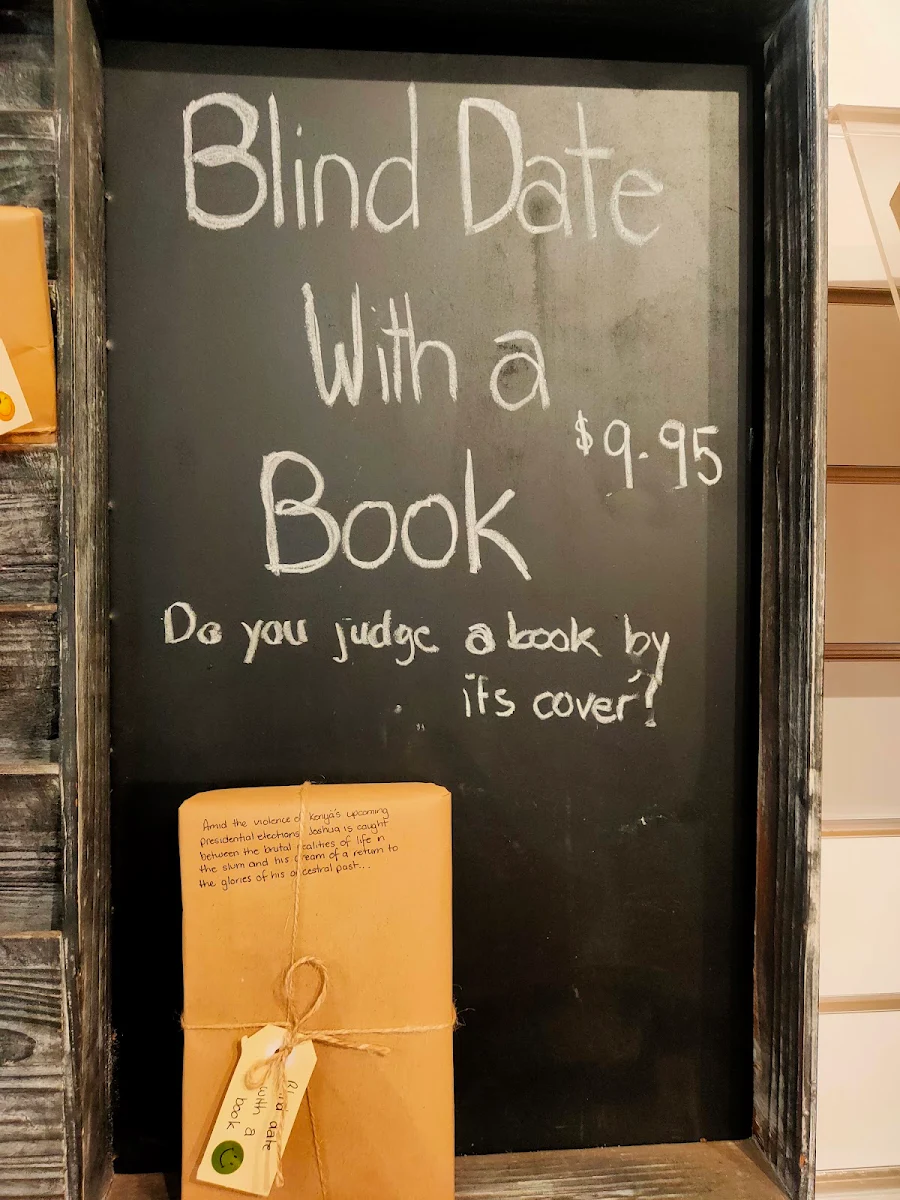 Blind Date
With a
$9.95
Book
Do you judge a book by
its cover?
Amid the violence of Kenya's upcoming
presidential elections, Joshua is caught
between the brutal realities of life in
the slum and his dream of a return to
the glories of his ancestral past...
Blind date
with a
book